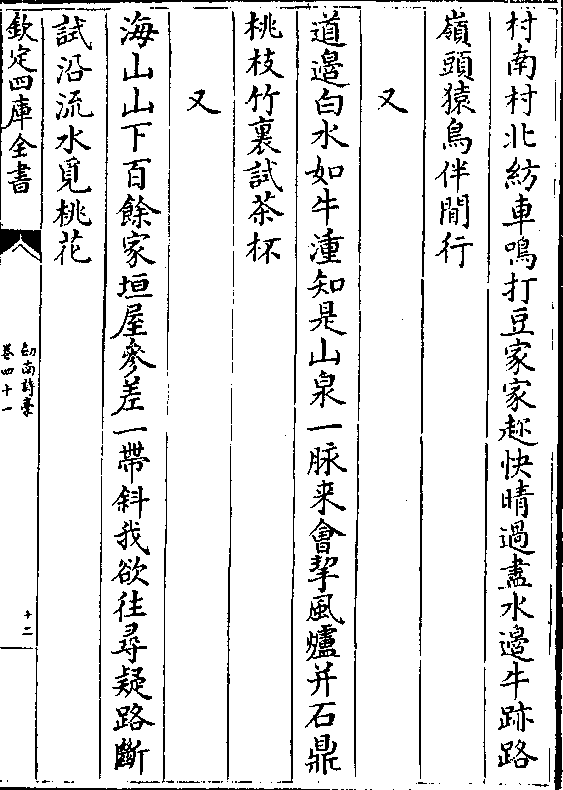 村南村北紡車鳴打豆家家趂快晴過盡水邊牛跡路
嶺頭猿鳥伴閒行
又
道邊白水如牛湩知是山泉一脉来會挈風爐并石鼎
桃枝竹裏試茶杯
又
海山山下百餘家垣屋參差一帶斜我欲往尋疑路斷
試沿流水覓桃花
欽定四庫全書
劎南詩藳
卷四十一
十二